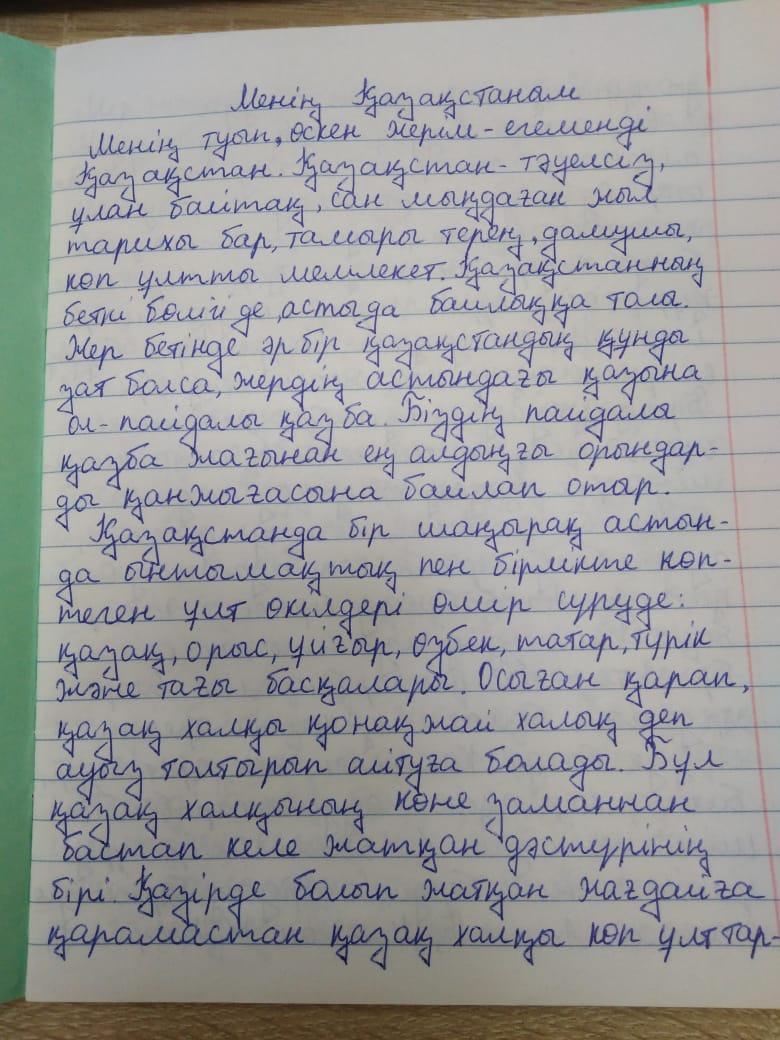 Менің Қазақстаным
Менің туып, өскен жерім - егеменді
Қазақстан. Қазақстан - тәуелсіз,
ұлан байтақ, сан мыңдаған жыл
тарихы бар, тамыры терең, дамушы,
көп ұлтты мемлекет. Қазақстанның
беткі бөлігі де, астыда байлыққа толы.
Жер бетінде әрбір қазақстандық құнды
зат болса, жердің астындағы қазына
ол - пайдалы қазба. Біздің пайдалы
қазба жағынан ең алдыңғы орындар-
ды қанжығасына байлап отыр.
Қазақстанда бір шаңырақ астын-
да ынтымақтық пен бірлікте көп-
теген ұлт өкілдері өмір сүруде:
қазақ, орыс, ұйғыр, өзбек, татар, түрік
және тағы басқалары. Осыған қарап,
қазақ халқы қонақжай халық деп
ауыз толтырып айтуға болады. Бұл
қазақ халқының көне заманнан
бастап келе жатқан дәстүрінің
бірі. Қазірде болып жатқан жағдайға
қарамастан қазақ халқы көп ұлттар-